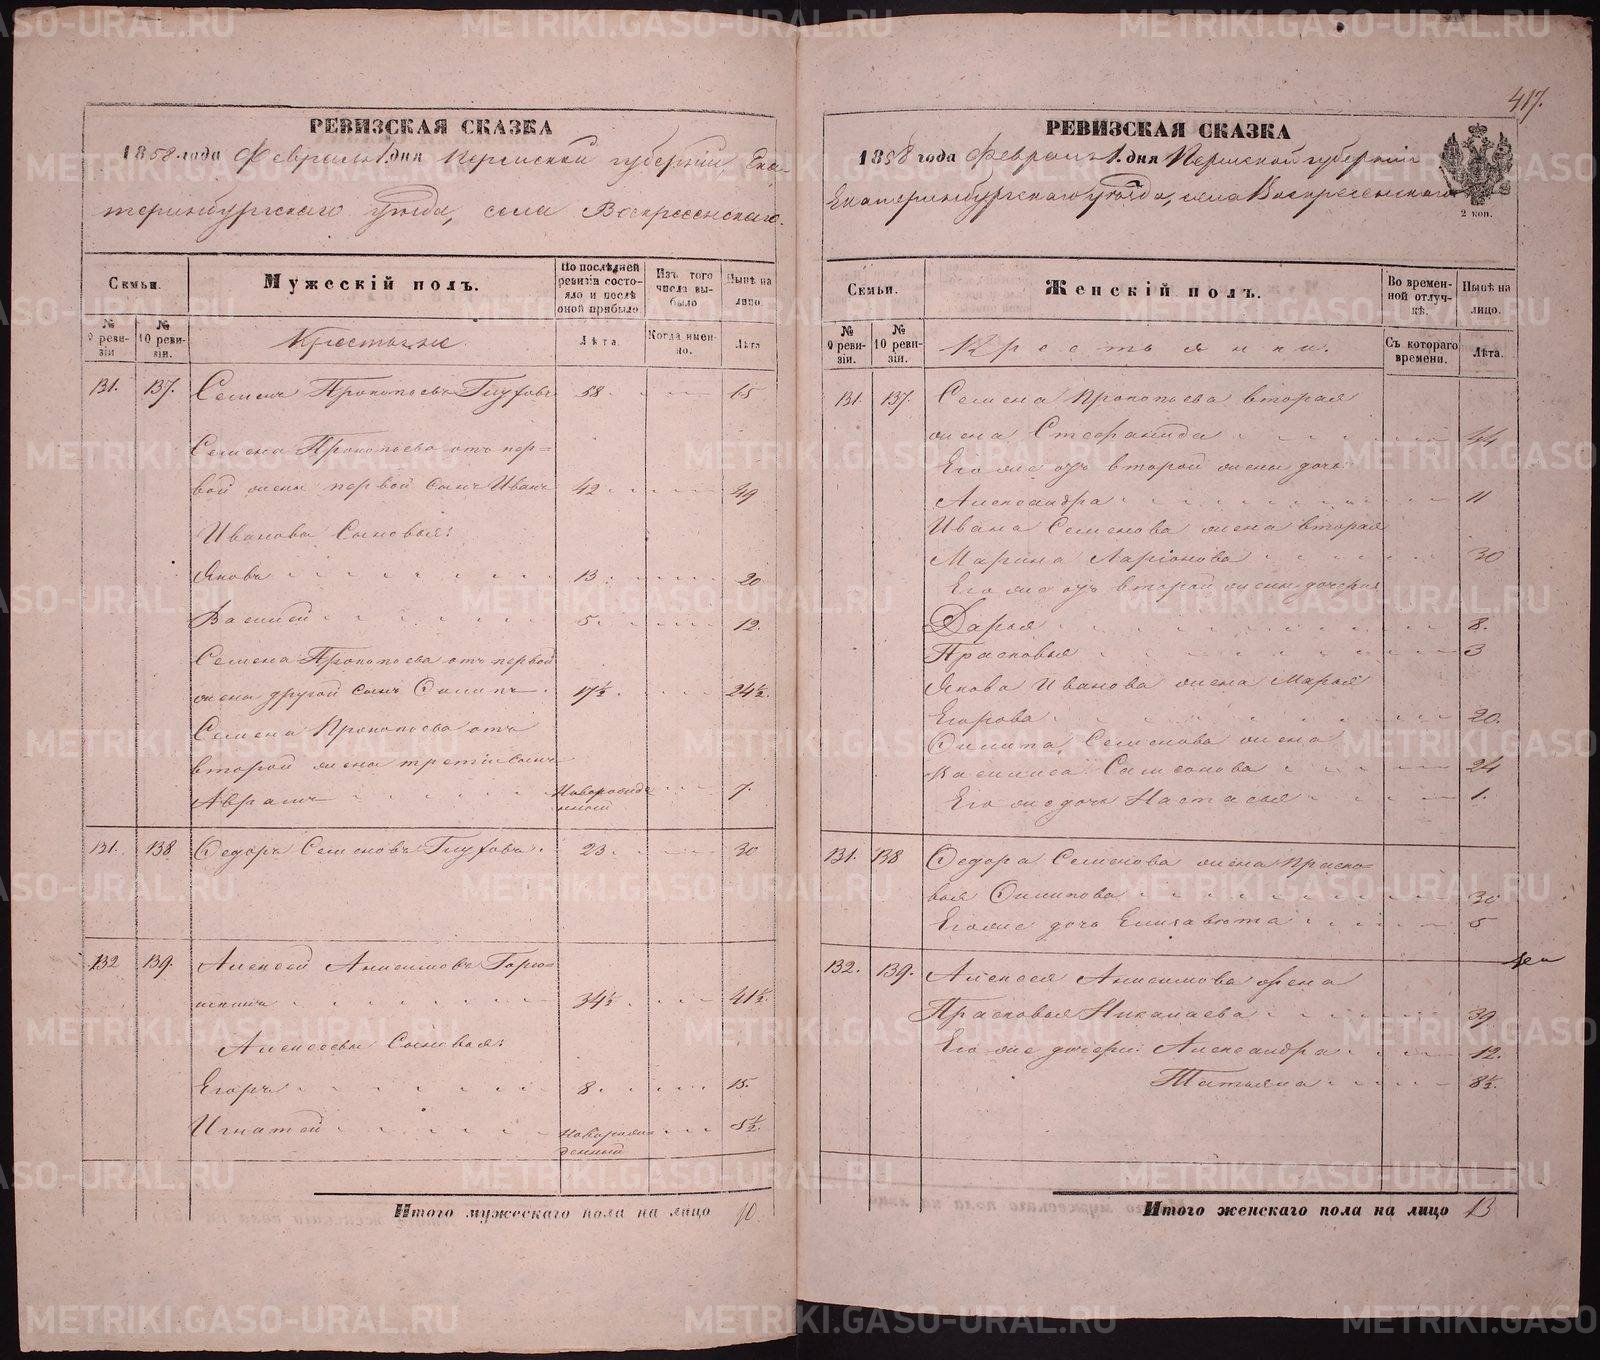 417.
РЕВИЗСКАЯ СКАЗКА
1858 года Февраля 1. дня Пермской губерніи, Ека-
теринбургскаго уѣзда, села Воскресенскаго.
Семьи.
Мужескій полъ.
По послѣдней ревизіи состояло и послѣ оной прибыло.
Изъ того числа выбыло
Нынѣ на лицо.
№ 9 ревизіи
№ 10 ревизіи.
Крестьяне.
Лѣта.
Когда именно.
Лѣта
131. 137. Семенъ Прокопьевъ 58. 65
Семена Прокопьева отъ пер-
вой жены первой сынъ Иванъ 42. 49
Ивана Сыновья:
Яковъ 13. 20
Василей 5. 12.
Семена Прокопьева отъ первой
жены другой сынъ Филипъ 17½. 24½.
Семена Прокопьева отъ
второй жены третій сынъ
Аврамъ Новорожденной 7.
131. 138 Федоръ Семеновъ 23. 30
132 139. Алексей Анисимовъ 34½. 41½.
Алексеевы Сыновья:
Егоръ 8. 15.
Игнатей Новорожденный 5½.
Итого мужескаго пола на лицо 10.
РЕВИЗСКАЯ СКАЗКА
1858 года Февраля 1. дня Пермской губерніи
Екатеринбургскаго уѣзда, села Воскресенскаго
2 коп.
Семьи.
Женскій полъ.
Во временной отлучкѣ.
Нынѣ на лицо.
№ 9 ревизіи.
№ 10 ревизіи.
Крестьянки.
Съ котораго времени.
Лѣта.
131 137. Семена Прокопьева вторая
жена Стефанида 44
Его же отъ второй жены дочь
Александра 11
Ивана Семенова жена вторая
Марина Ларіонова 30
Его же отъ второй жены дочери
Дарья 8.
Прасковья 3
Якова Иванова жена Марья
Егорова 20.
Филипа Семенова жена
Василиса Самсонова 24
Его же дочь Настасья 1.
131. 138 Федора Семенова жена Праско-
вья Филипова 30
Его же дочь Елизавета 5
132. 139. Алексея Анисимова жена
Прасковья Николаева 39
Его же дочери: Александра 12.
Татьяна 8½.
Итого женскаго пола на лицо 13
METRIKI.GASO-URAL.RU